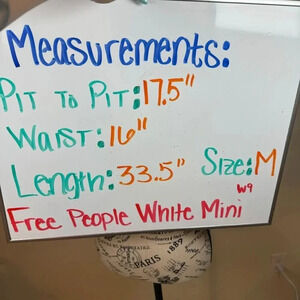 Measurements:
Pit to Pit: 17.5"
Waist: 16"
Length: 33.5" Size: M
W9
Free People White Mini
PARIS 1889